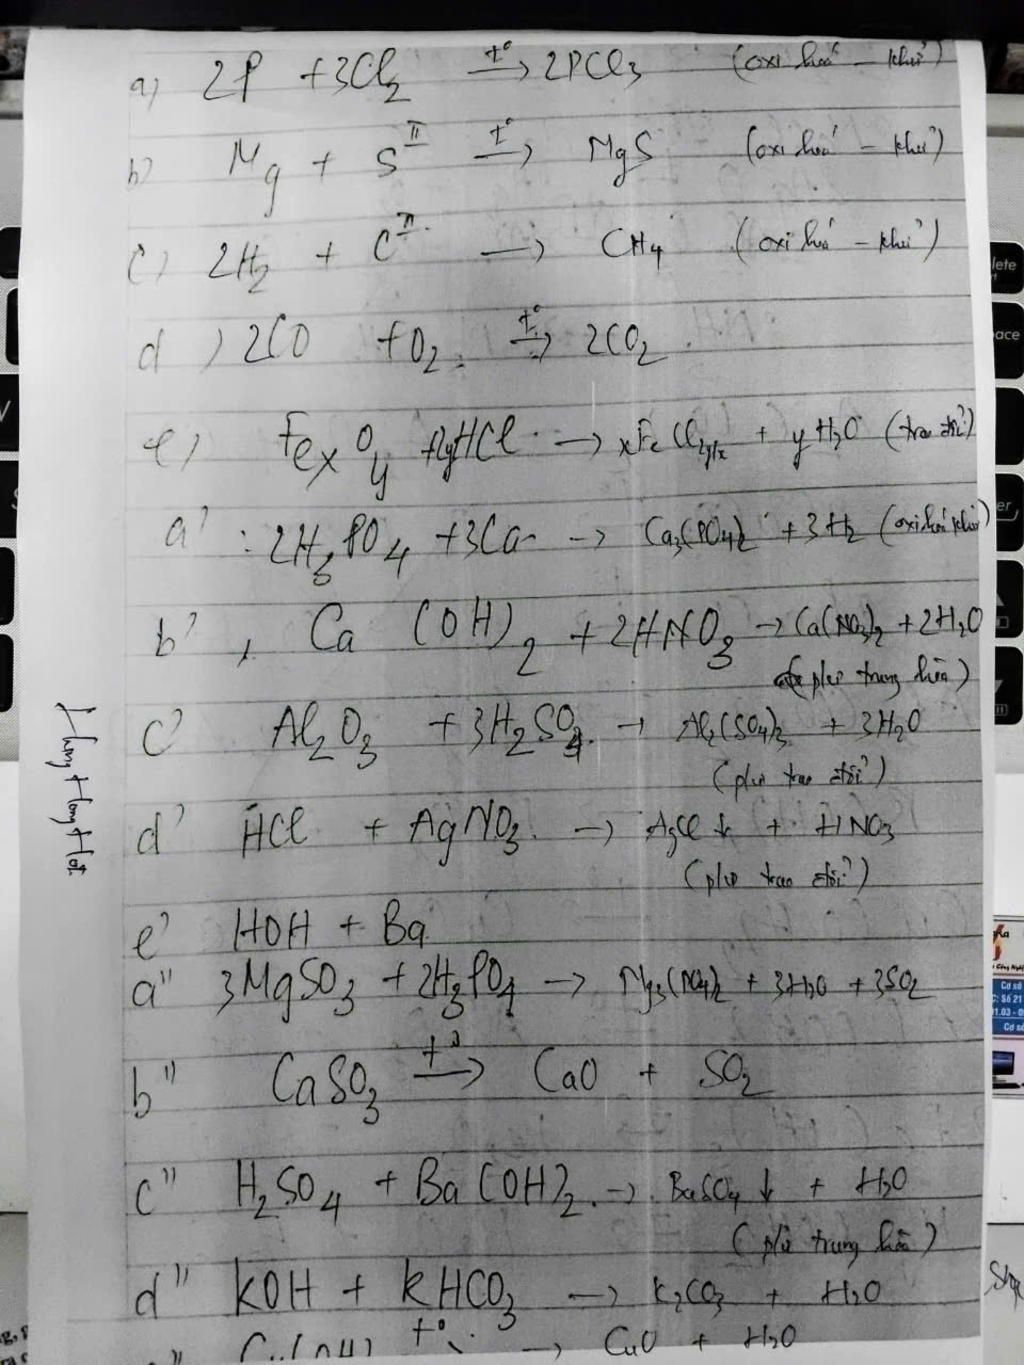 a) 2P + 3Cl2 t°→ 2PCl3 (oxi hoá - khử)
b) Mg + S II t°→ MgS (oxi hoá - khử)
c) 2H2 + C II → CH4 (oxi hoá - khử)
d) 2CO + O2 t°→ 2CO2
e) FexOy + 2yHCl → xFeCl2y/x + yH2O (trao đổi)
a' : 2H3PO4 + 3Ca → Ca3(PO4)2 + 3H2 (oxi hoá khử)
b' , Ca(OH)2 + 2HNO3 → Ca(NO3)2 + 2H2O
(pư trung hòa)
c' Al2O3 + 3H2SO4 → Al2(SO4)3 + 3H2O
(pư trao đổi)
d' HCl + AgNO3 → AgCl↓ + HNO3
(pư trao đổi)
e' HOH + Ba
a" 3MgSO3 + 2H3PO4 → Mg3(PO4)2 + 3H2O + 3SO2
b" CaSO3 t°→ CaO + SO2
c" H2SO4 + Ba(OH)2 → BaSO4↓ + H2O
(pư trung hòa)
d" KOH + KHCO3 → K2CO3 + H2O
t° → CuO + H2O
lete
ace
er
Cơ sở